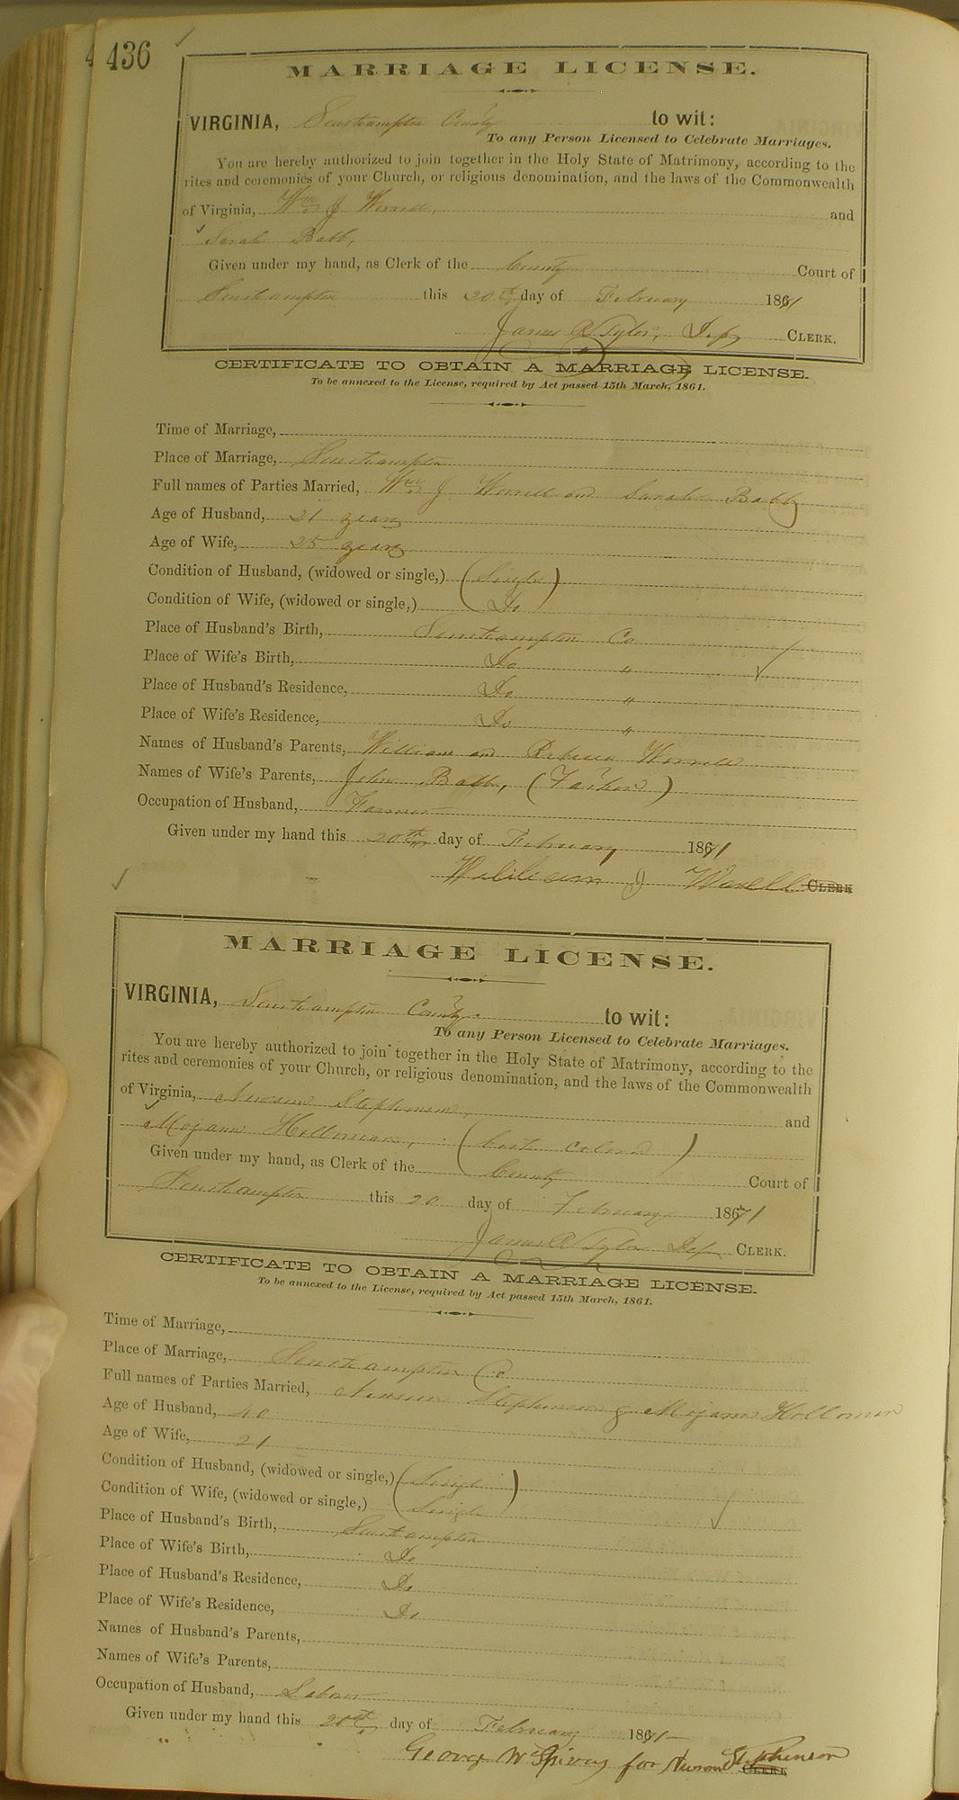 436
MARRIAGE LICENSE.
VIRGINIA, Southampton County to wit:
To any Person Licensed to Celebrate Marriages.
You are hereby authorized to join together in the Holy State of Matrimony, according to the
rites and ceremonies of your Church, or religious denomination, and the laws of the Commonwealth
of Virginia, Wm J Worrell, and
Sarah Babb,
Given under my hand, as Clerk of the County Court of
Southampton this 20th day of February 1871
James R Tyler, Dep CLERK.
CERTIFICATE TO OBTAIN A MARRIAGE LICENSE.
To be annexed to the License, required by Act passed 15th March, 1861.
Time of Marriage,
Place of Marriage, Southampton
Full names of Parties Married, Wm J Worrell and Sarah Babb
Age of Husband, 21 years
Age of Wife, 25 years
Condition of Husband, (widowed or single,) (Single)
Condition of Wife, (widowed or single,) Do
Place of Husband's Birth, Southampton Co
Place of Wife's Birth, Do "
Place of Husband's Residence, Do "
Place of Wife's Residence, Do "
Names of Husband's Parents, William and Rebecca Worrell
Names of Wife's Parents, John Babb, (Father)
Occupation of Husband, Farmer
Given under my hand this 20th day of February 1871
William J Worell CLERK
MARRIAGE LICENSE.
VIRGINIA, Southampton County to wit:
To any Person Licensed to Celebrate Marriages.
You are hereby authorized to join together in the Holy State of Matrimony, according to the
rites and ceremonies of your Church, or religious denomination, and the laws of the Commonwealth
of Virginia, Newsom Stephenson, and
Mojann Holloman, (both colored)
Given under my hand, as Clerk of the County Court of
Southampton this 20 day of February 1871
James R Tyler Dep CLERK.
CERTIFICATE TO OBTAIN A MARRIAGE LICENSE.
To be annexed to the License, required by Act passed 15th March, 1861.
Time of Marriage,
Place of Marriage, Southampton Co
Full names of Parties Married, Newsom Stephenson & Mojann Holloman
Age of Husband, 40
Age of Wife, 21
Condition of Husband, (widowed or single,) (Single)
Condition of Wife, (widowed or single,) Single
Place of Husband's Birth, Southampton
Place of Wife's Birth, Do
Place of Husband's Residence, Do
Place of Wife's Residence, Do
Names of Husband's Parents,
Names of Wife's Parents,
Occupation of Husband, Labour
Given under my hand this 20th day of February 1871
George W Spivey for Newsom Stephenson CLERK